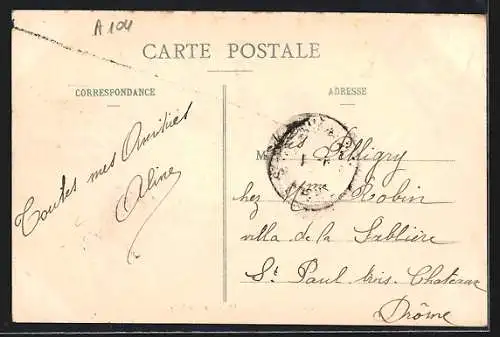 A 104
CARTE POSTALE
CORRESPONDANCE
Toutes mes Amitiés
Aline
ADRESSE
M es Pelligry
chez M Robin
villa de la Sablière
St Paul trois Chateaux
Drôme